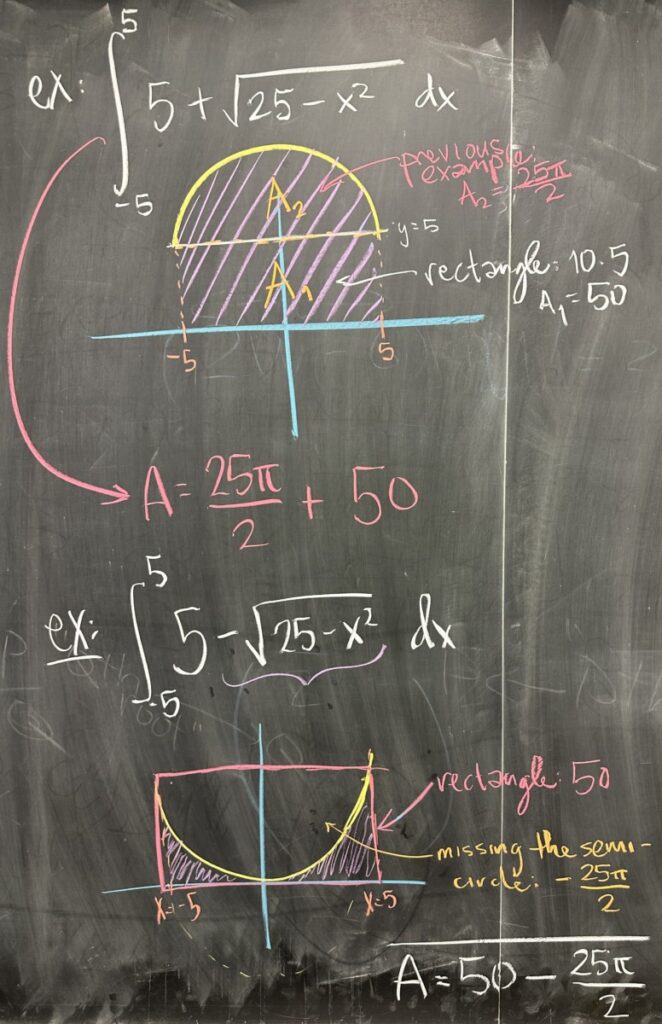 ex: ∫_{-5}^{5} 5 + √(25 - x²) dx
previous
example:
A₂ = 25π/2
A₂
y=5
rectangle: 10·5
A₁ = 50
A₁
-5 5
A = 25π/2 + 50
ex: ∫_{-5}^{5} 5 - √(25 - x²) dx
rectangle: 50
missing the semi-
circle: - 25π/2
x=-5 x=5
A = 50 - 25π/2